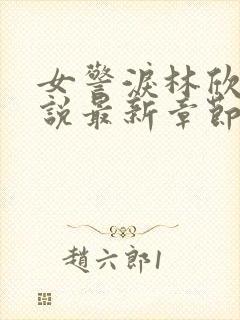 女警淚林欣
說最新章節
趙六郎1